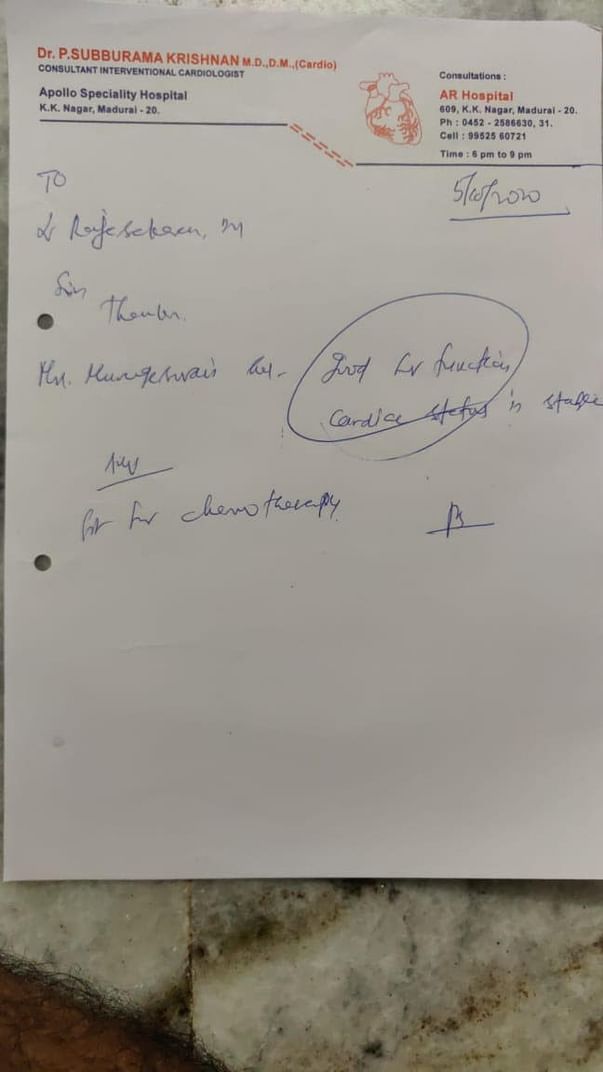 Dr. P.SUBBURAMA KRISHNAN M.D.,D.M.,(Cardio)
CONSULTANT INTERVENTIONAL CARDIOLOGIST
Apollo Speciality Hospital
K.K. Nagar, Madurai - 20.
Consultations :
AR Hospital
609, K.K. Nagar, Madurai - 20.
Ph : 0452 - 2586630, 31.
Cell : 99525 60721
Time : 6 pm to 9 pm
5/10/2020
TO
Dr Rajesekaran,
Sir
Thanks.
Mrs. Murugeswari
Good LV function
Cardiac status is stable
fit for chemotherapy